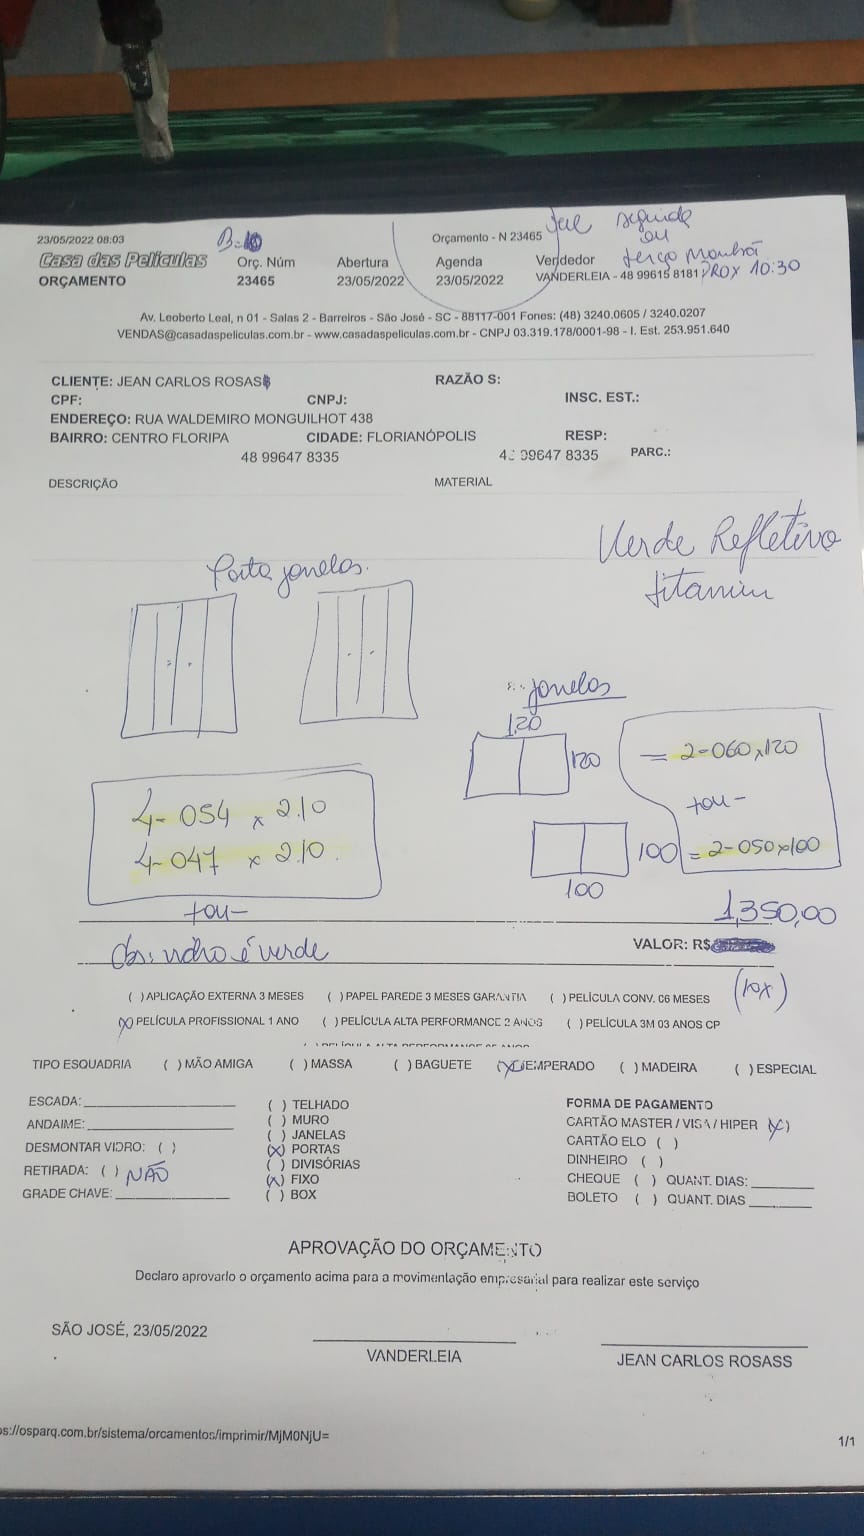 23/05/2022 08:03
Orçamento - N 23465
segunda
ou
terço Manhã
Casa das Películas
Orç. Núm
Abertura
Agenda
Vendedor
ORÇAMENTO
23465
23/05/2022
23/05/2022
VANDERLEIA - 48 99615 8181 PROX 10:30
Av. Leoberto Leal, n 01 - Salas 2 - Barreiros - São José - SC - 88117-001 Fones: (48) 3240.0605 / 3240.0207
VENDAS@casadaspeliculas.com.br - www.casadaspeliculas.com.br - CNPJ 03.319.178/0001-98 - I. Est. 253.951.640
CLIENTE: JEAN CARLOS ROSAS
RAZÃO S:
CPF:
CNPJ:
INSC. EST.:
ENDEREÇO: RUA WALDEMIRO MONGUILHOT 438
BAIRRO: CENTRO FLORIPA
CIDADE: FLORIANÓPOLIS
RESP:
48 99647 8335
48 99647 8335
PARC.:
DESCRIÇÃO
MATERIAL
Verde Refletivo
titaniu
Porta janelas.
janelas
1,20
120
= 2-060x120
tou-
4- 054 x 2.10
4- 047 x 2.10.
100
= 2-050x100
100
tou-
1,350,00
Obs: vidro é verde
VALOR: R$
(10x)
( ) APLICAÇÃO EXTERNA 3 MESES
( ) PAPEL PAREDE 3 MESES GARANTIA
( ) PELÍCULA CONV. 06 MESES
(X) PELÍCULA PROFISSIONAL 1 ANO
( ) PELÍCULA ALTA PERFORMANCE 2 ANOS
( ) PELÍCULA 3M 03 ANOS CP
TIPO ESQUADRIA
( ) MÃO AMIGA
( ) MASSA
( ) BAGUETE
(X) TEMPERADO
( ) MADEIRA
( ) ESPECIAL
ESCADA:
ANDAIME:
DESMONTAR VIDRO: ( )
RETIRADA: ( ) NÃO
GRADE CHAVE:
( ) TELHADO
( ) MURO
( ) JANELAS
(X) PORTAS
( ) DIVISÓRIAS
(X) FIXO
( ) BOX
FORMA DE PAGAMENTO
CARTÃO MASTER / VISA / HIPER (X)
CARTÃO ELO ( )
DINHEIRO ( )
CHEQUE ( ) QUANT. DIAS:
BOLETO ( ) QUANT. DIAS
APROVAÇÃO DO ORÇAMENTO
Declaro aprovado o orçamento acima para a movimentação empresarial para realizar este serviço
SÃO JOSÉ, 23/05/2022
VANDERLEIA
JEAN CARLOS ROSASS
os://osparq.com.br/sistema/orcamentos/imprimir/MjM0NjU=
1/1